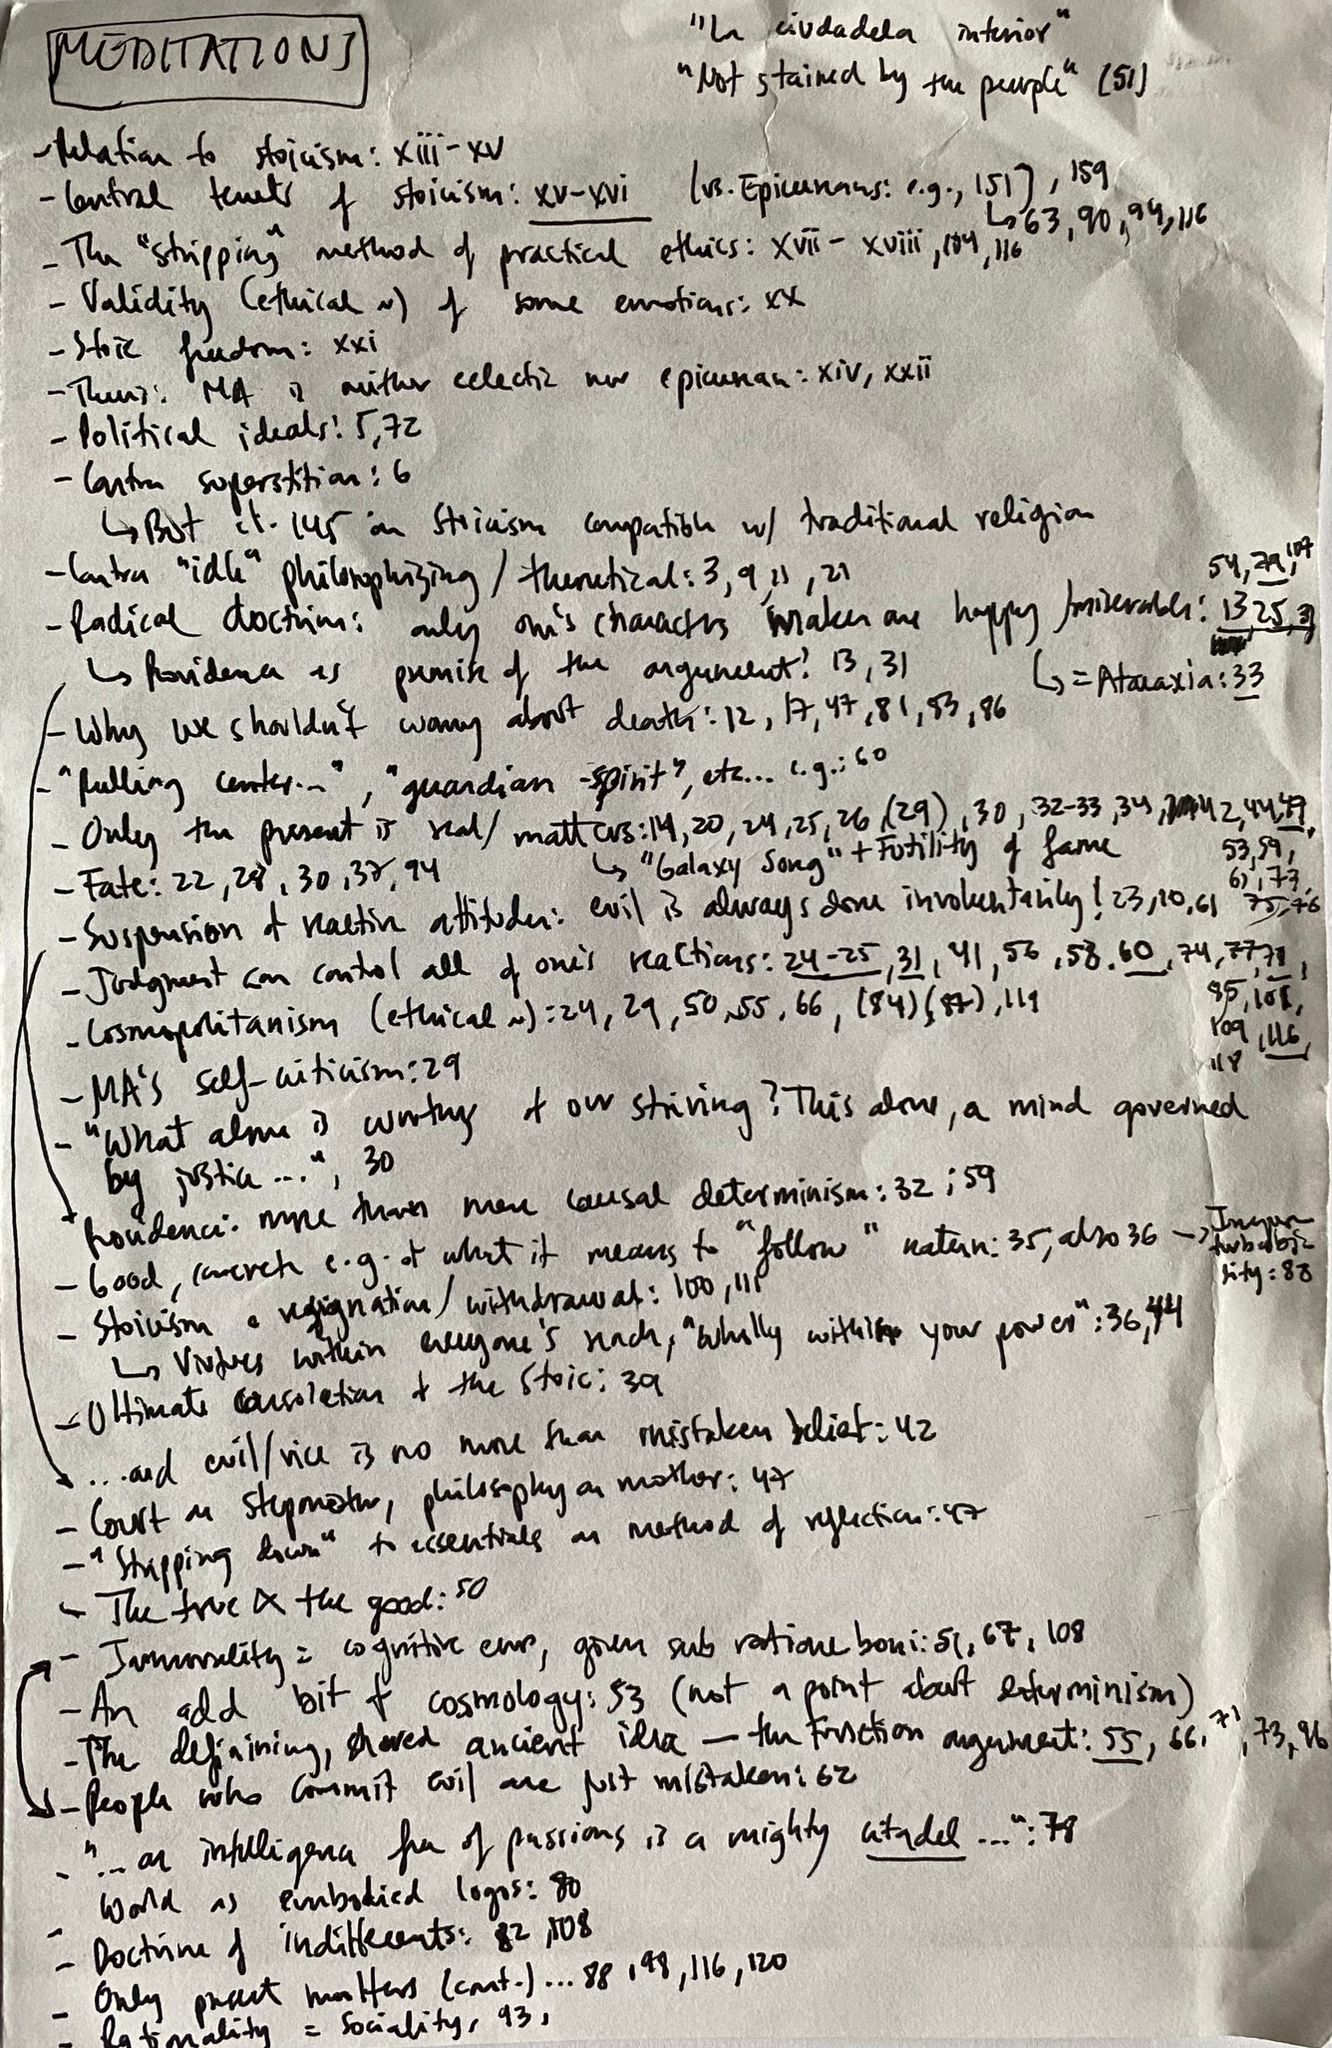 MEDITATIONS
"La ciudadela interior"
"Not stained by the purple" (51)
- Relation to stoicism: xiii-xv
- Central tenets of stoicism: xv-xvi (vs. Epicureans: e.g., 151), 159
↳ 63, 90, 94, 116
- The "stripping" method of practical ethics: xvii-xviii, 104, 116
- Validity (ethical ~) of some emotions: xx
- Stoic freedom: xxi
- Thesis: MA is neither eclectic nor epicurean: xiv, xxii
- Political ideals: 5, 72
- Contra superstition: 6
↳ But cf. 145 on Stoicism compatible w/ traditional religion
- Contra "idle" philosophizing / theoretical: 3, 9, 11, 21
54, 29, 107
- Radical doctrine: only one's character makes one happy / miserable: 13, 25, 31
↳ Providence as premise of the argument? 13, 31
↳ = Ataraxia: 33
- Why we shouldn't worry about death: 12, 17, 47, 81, 83, 86
- "Ruling center...", "guardian-spirit", etc... e.g.: 60
- Only the present is real / matters: 14, 20, 24, 25, 26, (29), 30, 32-33, 34, 42, 44, 49,
53, 59,
61, 73,
75, 76
↳ "Galaxy Song" + Futility of fame
- Fate: 22, 28, 30, 37, 94
- Suspension of reactive attitudes: evil is always done involuntarily! 23, 10, 61
- Judgment can control all of one's reactions: 24-25, 31, 41, 56, 58, 60, 74, 77, 78,
85, 108,
109, 116,
118
- Cosmopolitanism (ethical ~): 24, 29, 50, 55, 66, (84) (87), 119
- MA's self-criticism: 29
- "What alone is worthy of our striving? This alone, a mind governed
by justice...", 30
Providence: more than mere causal determinism: 32; 59
- Good, concrete e.g. of what it means to "follow" nature: 35, also 36 → Imperturbability: 88
- Stoicism & resignation / withdrawal: 100, 111
↳ Virtues within everyone's reach, "wholly within your power": 36, 44
- Ultimate consolation of the Stoic: 39
...and evil/vice is no more than mistaken belief: 42
- Court as stepmother, philosophy as mother: 47
- "Stripping down" to essentials as method of reflection: 47
- The true & the good: 50
- Immorality = cognitive error, given sub ratione boni: 51, 67, 108
- An odd bit of cosmology: 53 (not a point about determinism)
- The defining, shared ancient idea — the function argument: 55, 66, 71, 73, 96
- People who commit evil are just mistaken: 62
- "...an intelligence free of passions is a mighty citadel...": 78
- World as embodied logos: 80
- Doctrine of indifferents: 82, 108
- Only present matters (cont.)... 88, 98, 116, 120
- Rationality = Sociality, 93,